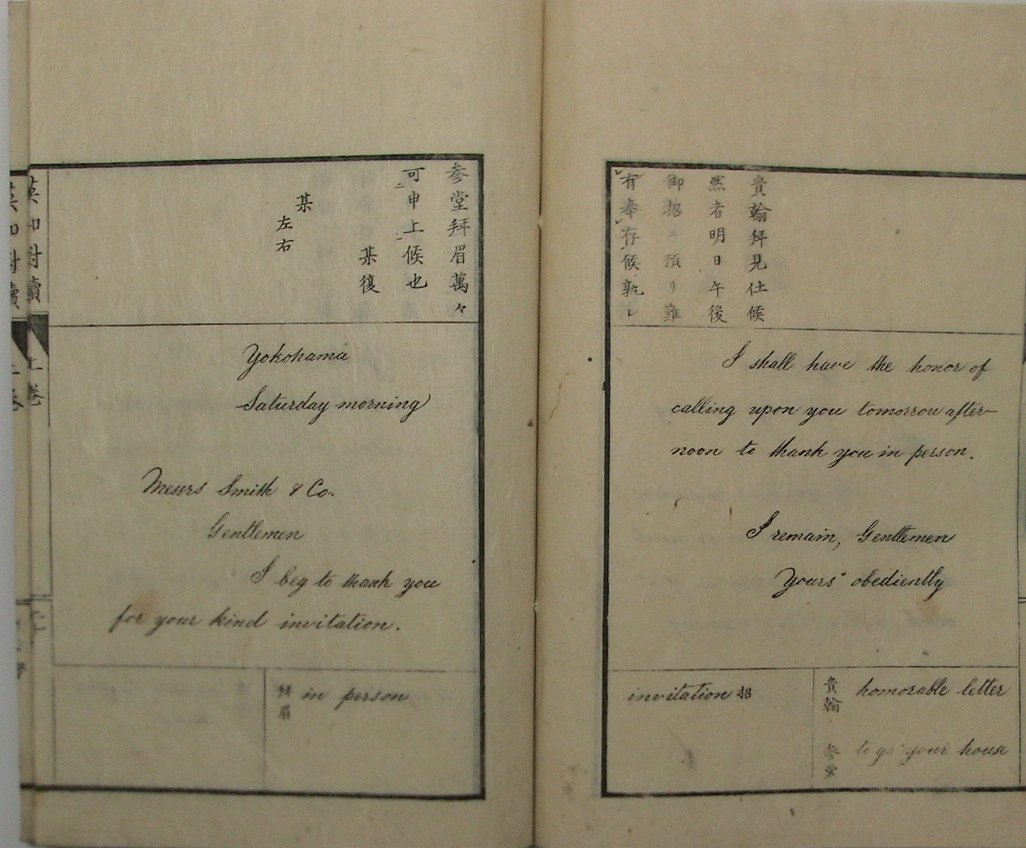 参堂拜眉萬々
可申上候也
某復
某
左右
Yokohama
Saturday morning
Messrs Smith & Co.
Gentlemen
I beg to thank you
for your kind invitation.
拜眉 in person
英和對牘
上巻
貴翰拜見仕候
然者明日午後
御招ニ預リ難
有奉存候孰レ
I shall have the honor of
calling upon you tomorrow after-
noon to thank you in person.
I remain, Gentlemen
Yours obediently
貴翰 honorable letter
参堂 to go your house
invitation 招